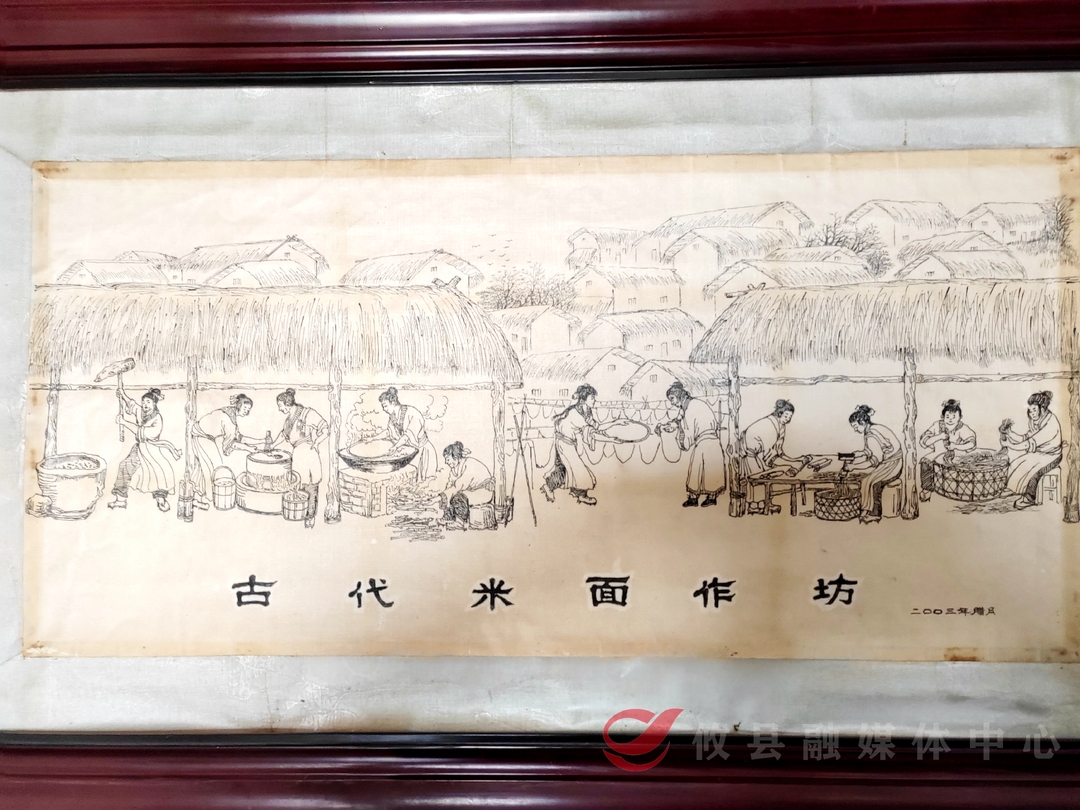 古代米面作坊
二〇〇三年腊月
攸县融媒体中心